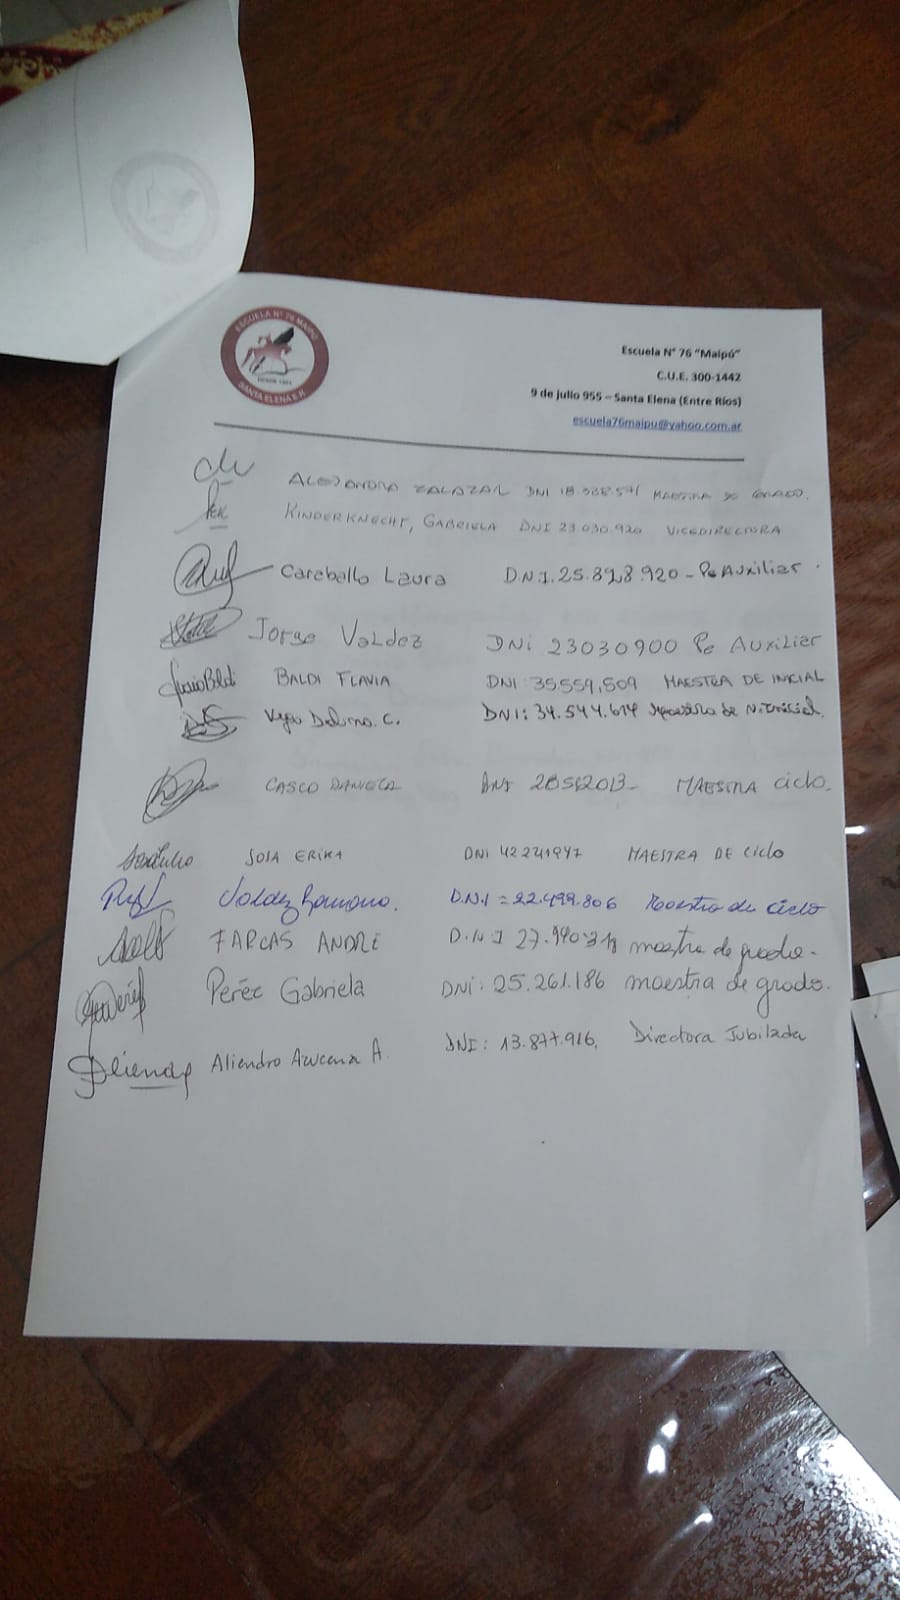 ESCUELA N° 76 MAIPÚ
SANTA ELENA E.R.
Escuela N° 76 "Maipú"
C.U.E. 300-1442
9 de julio 955 – Santa Elena (Entre Ríos)
escuela76maipu@yahoo.com.ar
ALEJANDRA ZALAZAR DNI MAESTRA DE GRADO.
KINDERKNECHT, GABRIELA DNI 23.030.920 VICEDIRECTORA
Careballo Laura D.N.I. 25.828.920 - Po Auxiliar
Jorge Valdez DNi 23030900 Po AUXiliar
BALDI FLAVIA DNI 35.559.509 MAESTRA DE INICIAL
C. DNI: 34.544.614 Maestra de N. Inicial.
CASCO DANIELA DNI MAESTRA ciclo.
SOSA ERIKA DNI 42241947 MAESTRA DE Ciclo
Valdez Romano. D.N.I = 22.499.806 Maestro de ciclo
FARCAS ANDRE D.N.I maestra de grado.
Peréz Gabriela DNi: 25.261.186 maestra de grado.
Aliendro Azucena A. DNI: 13.877.916. Directora Jubilada